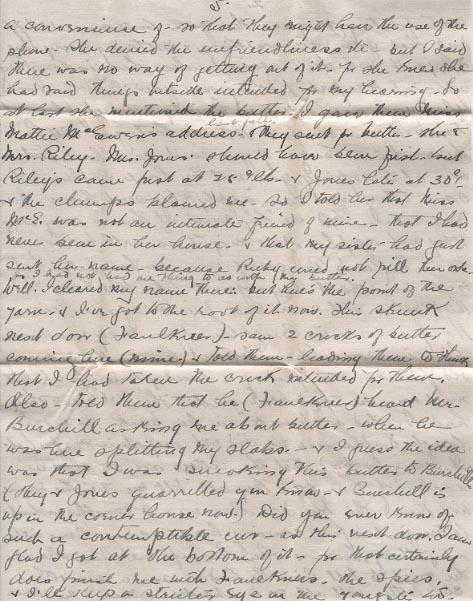 5.
a convenience of - so that they might have the use of the
phone. She denied the unfriendliness etc - but I said
there was no way of getting out of it - for she knew she
had said things outside intended for my hearing. So
at last she mentioned the butter. I gave them Miss
last fall.
Mattie McEwen's address. & they sent for butter. she &
Mrs. Riley. Mrs. Jones' should have been first - but
Riley's came first at 25¢ lb. & Jones' late at 30¢
& the chumps blamed me. So I told her that Miss
McE. was not an intimate friend of mine - that I had
never been in her house. & that my sister had just
sent her name - because Ruby could not fill her order
for I had not had one thing to do with my butter
well. I cleared my name there. but here's the point of the
yarn - & I've got to the root of it now. This skunk
next door (Faulkner) - saw 2 crocks of butter
coming here (mine) & told them - leading them to think
that I had taken the crock intended for them.
Also - told them that he (Faulkner) heard Mr.
Burchill asking me about butter - when he
was here splitting my slabs. - & I guess the idea
was that I was sneaking this butter to Burchill
(they & Jones quarrelled you know - & Burchill is
up in the corner house now) Did you ever know of
such a contemptible cur - as this next door. I am
glad I got at the bottom of it - for that certainly
does finish me with Faulkners - the spies,
& I'll keep a stricter eye on the